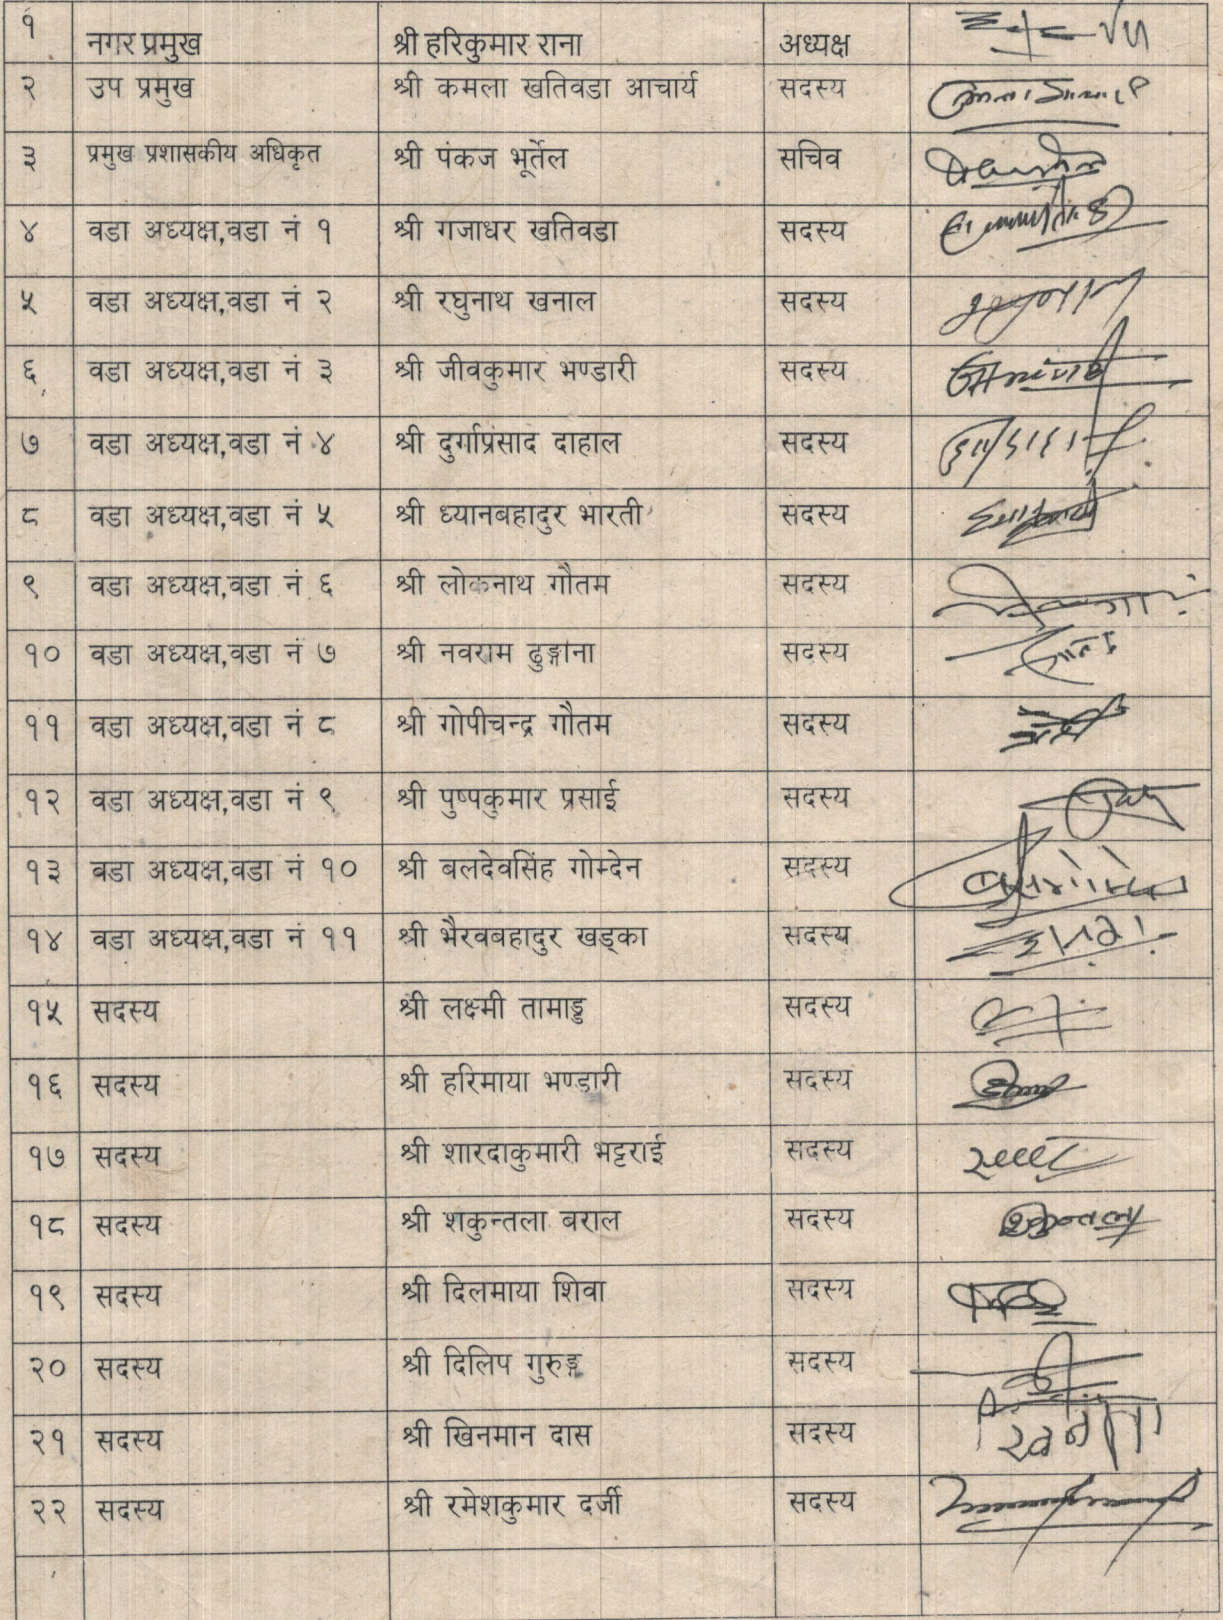 १ नगर प्रमुख श्री हरिकुमार राना अध्यक्ष
२ उप प्रमुख श्री कमला खतिवडा आचार्य सदस्य
३ प्रमुख प्रशासकीय अधिकृत श्री पंकज भूर्तेल सचिव
४ वडा अध्यक्ष,वडा नं १ श्री गजाधर खतिवडा सदस्य
५ वडा अध्यक्ष,वडा नं २ श्री रघुनाथ खनाल सदस्य
६ वडा अध्यक्ष,वडा नं ३ श्री जीवकुमार भण्डारी सदस्य
७ वडा अध्यक्ष,वडा नं ४ श्री दुर्गाप्रसाद दाहाल सदस्य
८ वडा अध्यक्ष,वडा नं ५ श्री ध्यानबहादुर भारती सदस्य
९ वडा अध्यक्ष,वडा नं ६ श्री लोकनाथ गौतम सदस्य
१० वडा अध्यक्ष,वडा नं ७ श्री नवराम ढुङ्गाना सदस्य
११ वडा अध्यक्ष,वडा नं ८ श्री गोपीचन्द्र गौतम सदस्य
१२ वडा अध्यक्ष,वडा नं ९ श्री पुष्पकुमार प्रसाई सदस्य
१३ वडा अध्यक्ष,वडा नं १० श्री बलदेवसिंह गोम्देन सदस्य
१४ वडा अध्यक्ष,वडा नं ११ श्री भैरवबहादुर खड्का सदस्य
१५ सदस्य श्री लक्ष्मी तामाङ सदस्य
१६ सदस्य श्री हरिमाया भण्डारी सदस्य
१७ सदस्य श्री शारदाकुमारी भट्टराई सदस्य
१८ सदस्य श्री शकुन्तला बराल सदस्य शकुन्तला
१९ सदस्य श्री दिलमाया शिवा सदस्य
२० सदस्य श्री दिलिप गुरुङ्ग सदस्य
२१ सदस्य श्री खिनमान दास सदस्य
२२ सदस्य श्री रमेशकुमार दर्जी सदस्य